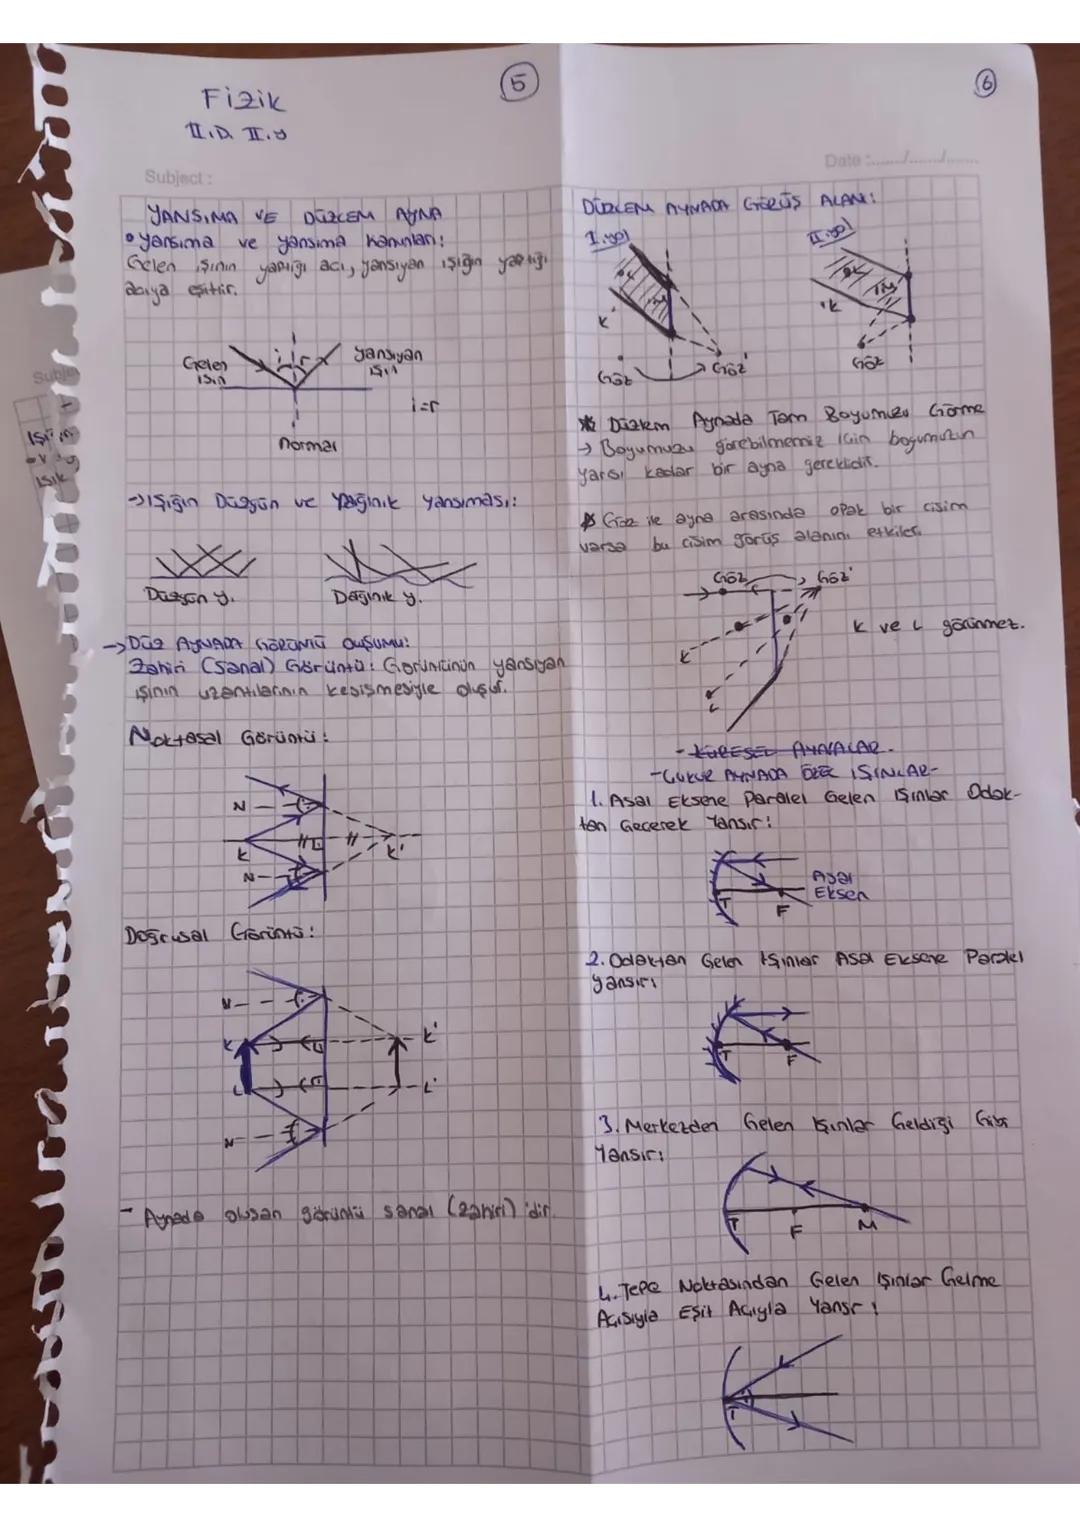 5
Fizik
II.D. II.y
Subject :
YANSIMA VE DÜZLEM AYNA
• yansıma ve yansıma kanunları:
Gelen ışının yaptığı acı, yansıyan ışığın yaptığı
acıya eşittir.
Gelen ışın
i r
yansıyan ışın
i=r
normal
→ Işığın Düzgün ve Dağınık yansıması:
Düzgün y.
Dağınık y.
→ Düz AYNADA GÖRÜNTÜ OLUŞUMU:
Zahiri (Sanal) Görüntü: Görüntünün yansıyan
ışının uzantılarının kesişmesiyle oluşur.
Noktasal Görüntü:
N
K
K'
N
Doğrusal Görüntü:
N
K
K'
L
L'
N
- Aynada oluşan görüntü sanal (zahiri)'dir.
6
Date :....../....../......
DÜZLEM AYNADA GÖRÜŞ ALANI:
I. yol
II. yol
K
Göz
Göz'
Göz
* Düzlem Aynada Tam Boyumuzu Görme
→ Boyumuzu görebilmemiz için boyumuzun
yarısı kadar bir ayna gereklidir.
* Göz ile ayna arasında opak bir cisim
varsa bu cisim görüş alanını etkiler.
Göz
Göz'
K
L
K ve L görünmez.
- KÜRESEL AYNALAR -
- ÇUKUR AYNADA ÖZEL IŞINLAR -
1. Asal Eksene Paralel Gelen Işınlar Odak-
tan Geçerek Yansır:
Asal
Eksen
T
F
2. Odaktan Gelen Işınlar Asal Eksene Paralel
yansır:
T
F
3. Merkezden Gelen Işınlar Geldiği Gibi
Yansır:
T
F
M
4. Tepe Noktasından Gelen Işınlar Gelme
Açısıyla Eşit Açıyla Yansır:
T